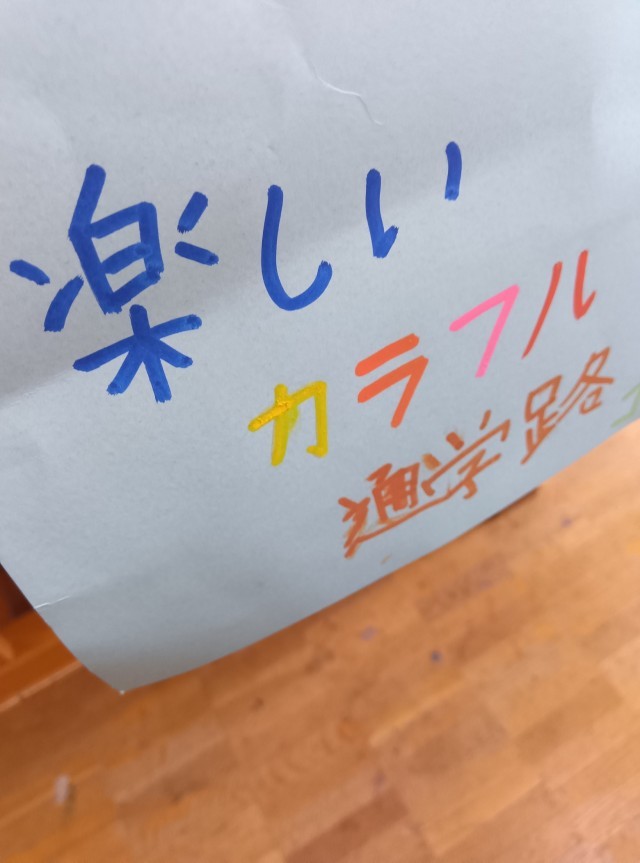 楽しい
カラフル
通学路